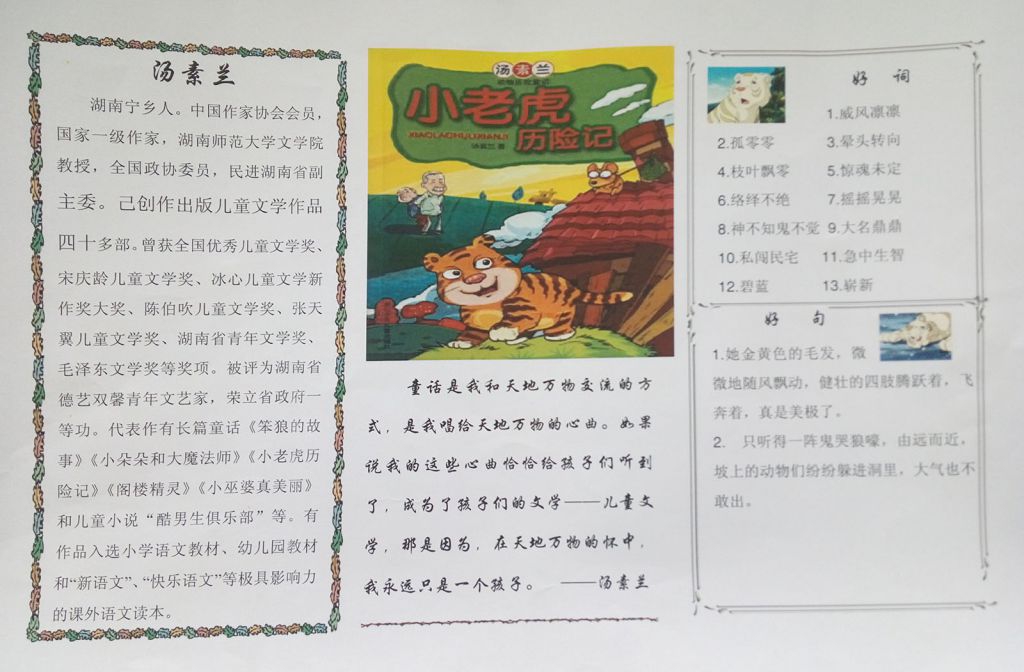 汤素兰
湖南宁乡人。中国作家协会会员，
国家一级作家，湖南师范大学文学院
教授，全国政协委员，民进湖南省副
主委。己创作出版儿童文学作品
四十多部。曾获全国优秀儿童文学奖、
宋庆龄儿童文学奖、冰心儿童文学新
作奖大奖、陈伯吹儿童文学奖、张天
翼儿童文学奖、湖南省青年文学奖、
毛泽东文学奖等奖项。被评为湖南省
德艺双馨青年文艺家，荣立省政府一
等功。代表作有长篇童话《笨狼的故
事》《小朵朵和大魔法师》《小老虎历
险记》《阁楼精灵》《小巫婆真美丽》
和儿童小说“酷男生俱乐部”等。有
作品入选小学语文教材、幼儿园教材
和“新语文”、“快乐语文”等极具影响力
的课外语文读本。
汤素兰
小老虎
XIAOLAOHULIXIANJI
历险记
汤素兰 著
童话是我和天地万物交流的方
式，是我唱给天地万物的心曲。如果
说我的这些心曲恰恰给孩子们听到
了，成为了孩子们的文学——儿童文
学，那是因为，在天地万物的怀中，
我永远只是一个孩子。 ——汤素兰
好 词
1.威风凛凛
2.孤零零 3.晕头转向
4.枝叶飘零 5.惊魂未定
6.络绎不绝 7.摇摇晃晃
8.神不知鬼不觉 9.大名鼎鼎
10.私闯民宅 11.急中生智
12.碧蓝 13.崭新
好 句
1.她金黄色的毛发，微
微地随风飘动，健壮的四肢腾跃着，飞
奔着，真是美极了。
2. 只听得一阵鬼哭狼嚎，由远而近，
坡上的动物们纷纷躲进洞里，大气也不
敢出。